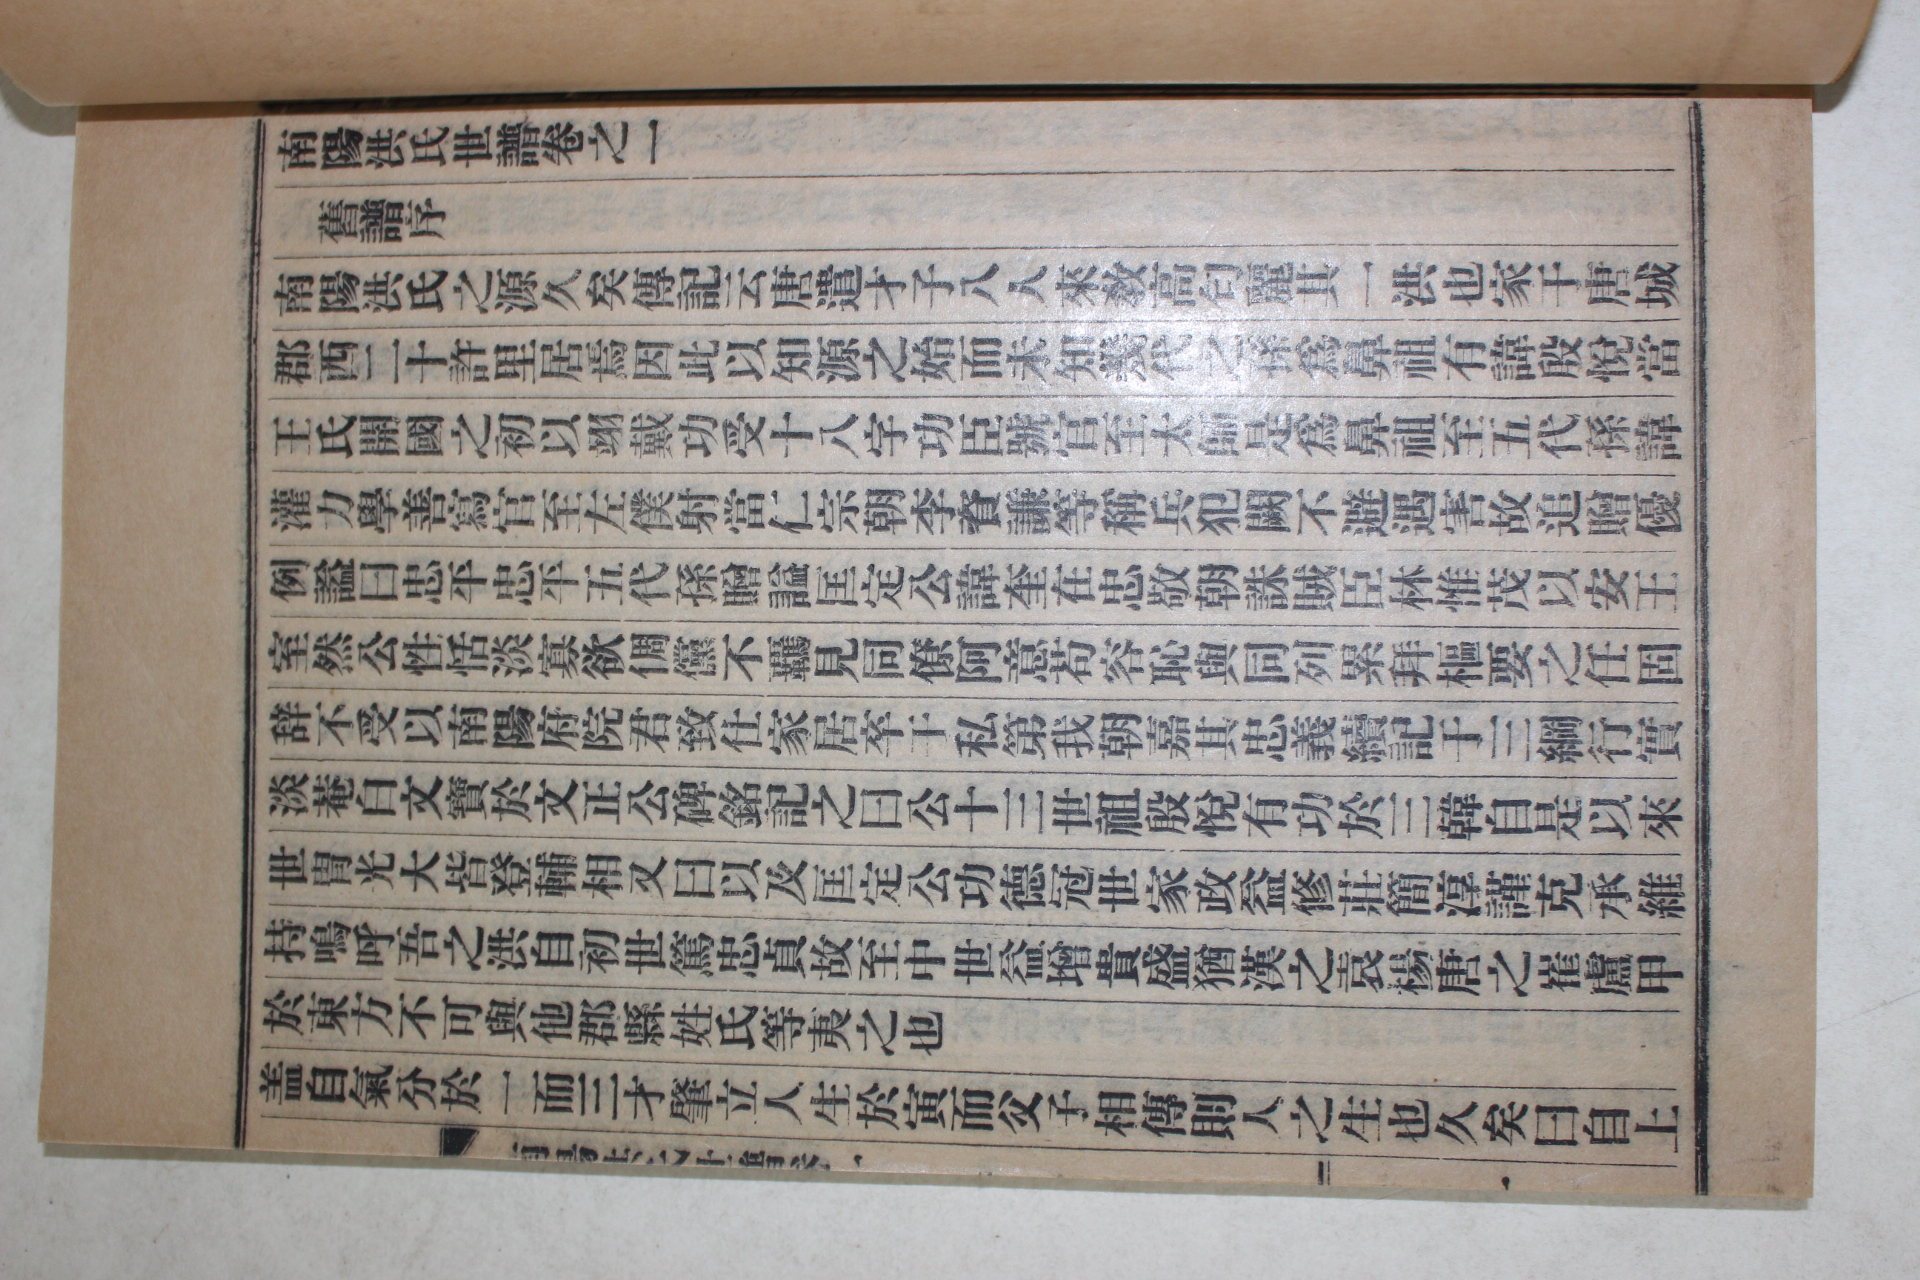 南陽洪氏世譜卷之一
舊譜序
南陽洪氏之源久矣傳記云唐遣才子八人來敎高句麗其一洪也家于唐城
郡西二十許里居焉因此以知源之始而未知幾代之孫爲鼻祖有諱殷悅當
王氏開國之初以翊戴功受十八字功臣號官至太師是爲鼻祖至五代孫諱
灌力學善寫官至左僕射當仁宗朝李資謙等稱兵犯闕不避遇害故追贈優
例謚曰忠平忠平五代孫贈謚匡定公諱奎在忠敬朝誅賊臣林惟茂以安王
室然公性恬淡寡欲倜儻不羈見同僚阿意苟容恥與同列累拜樞要之任固
辞不受以南陽府院君致仕家居卒于私第我朝嘉其忠義續記于三綱行實
淡菴白文寶於文正公碑銘記之曰公十三世祖殷悅有功於三韓自是以來
世胄光大皆登輔相又曰以及匡定公功德冠世家政益修莊簡淳謹克承維
持嗚呼吾之洪自初世篤忠貞故至中世益增貴盛猶漢之袁楊唐之崔盧甲
於東方不可與他郡縣姓氏等夷之也
盖自氣分於一而三才肇立人生於寅而父子相傳則人之生也久矣曰自上